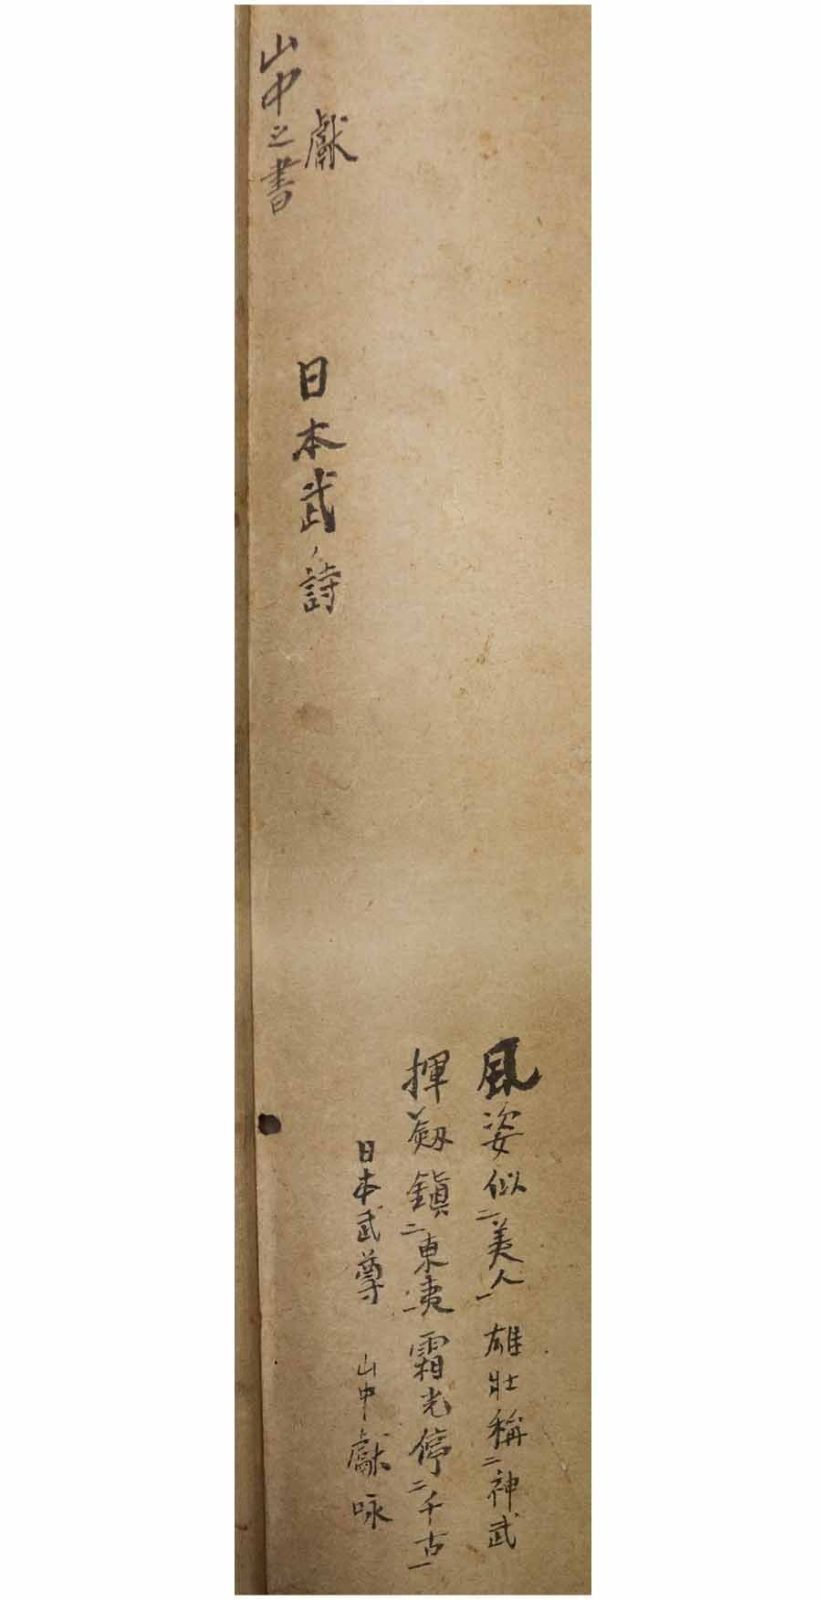 獻
山中之書
日本武ノ詩
風姿似㆓美人㆒雄壯稱㆓神武
揮劔鎭㆓東夷㆒霜光停㆓千古㆒
日本武尊 山中獻咏